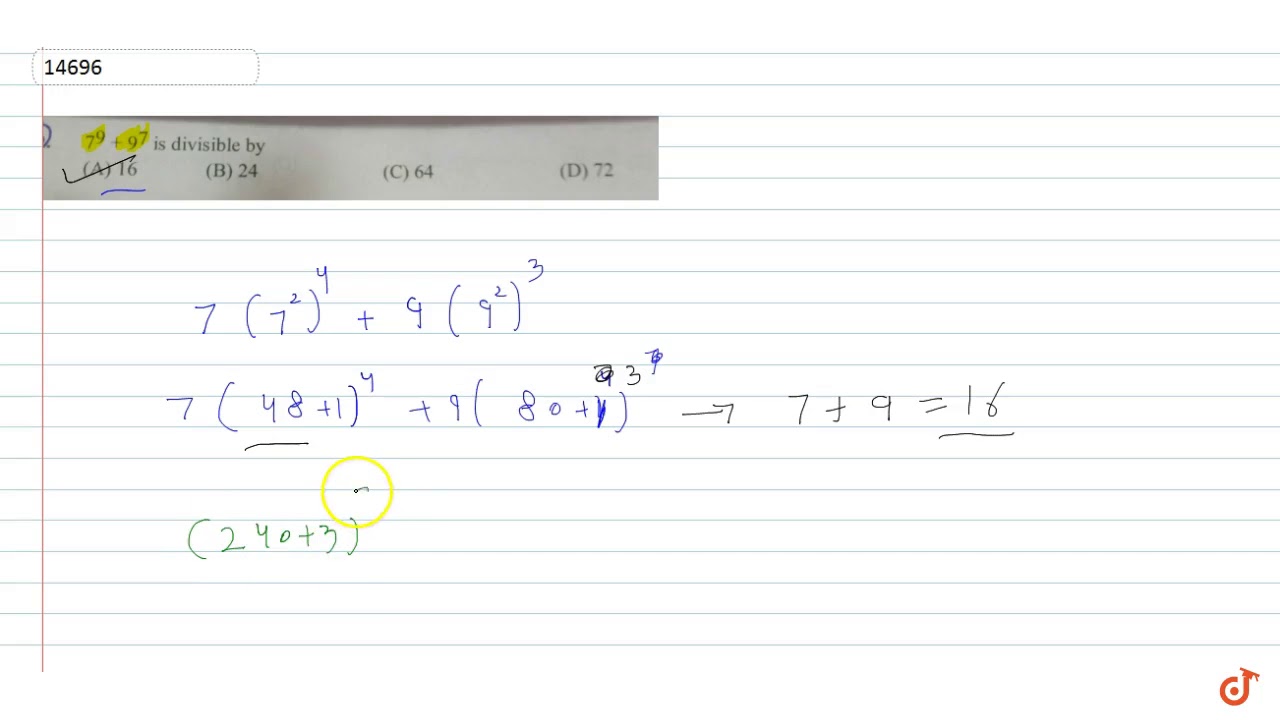 14696
7⁹ + 9⁷ is divisible by
(A) 16 (B) 24 (C) 64 (D) 72
7 (7²)⁴ + 9 (9²)³
7 (48+1)⁴ + 9 (80+1)³ → 7 + 9 = 16
(240+3)